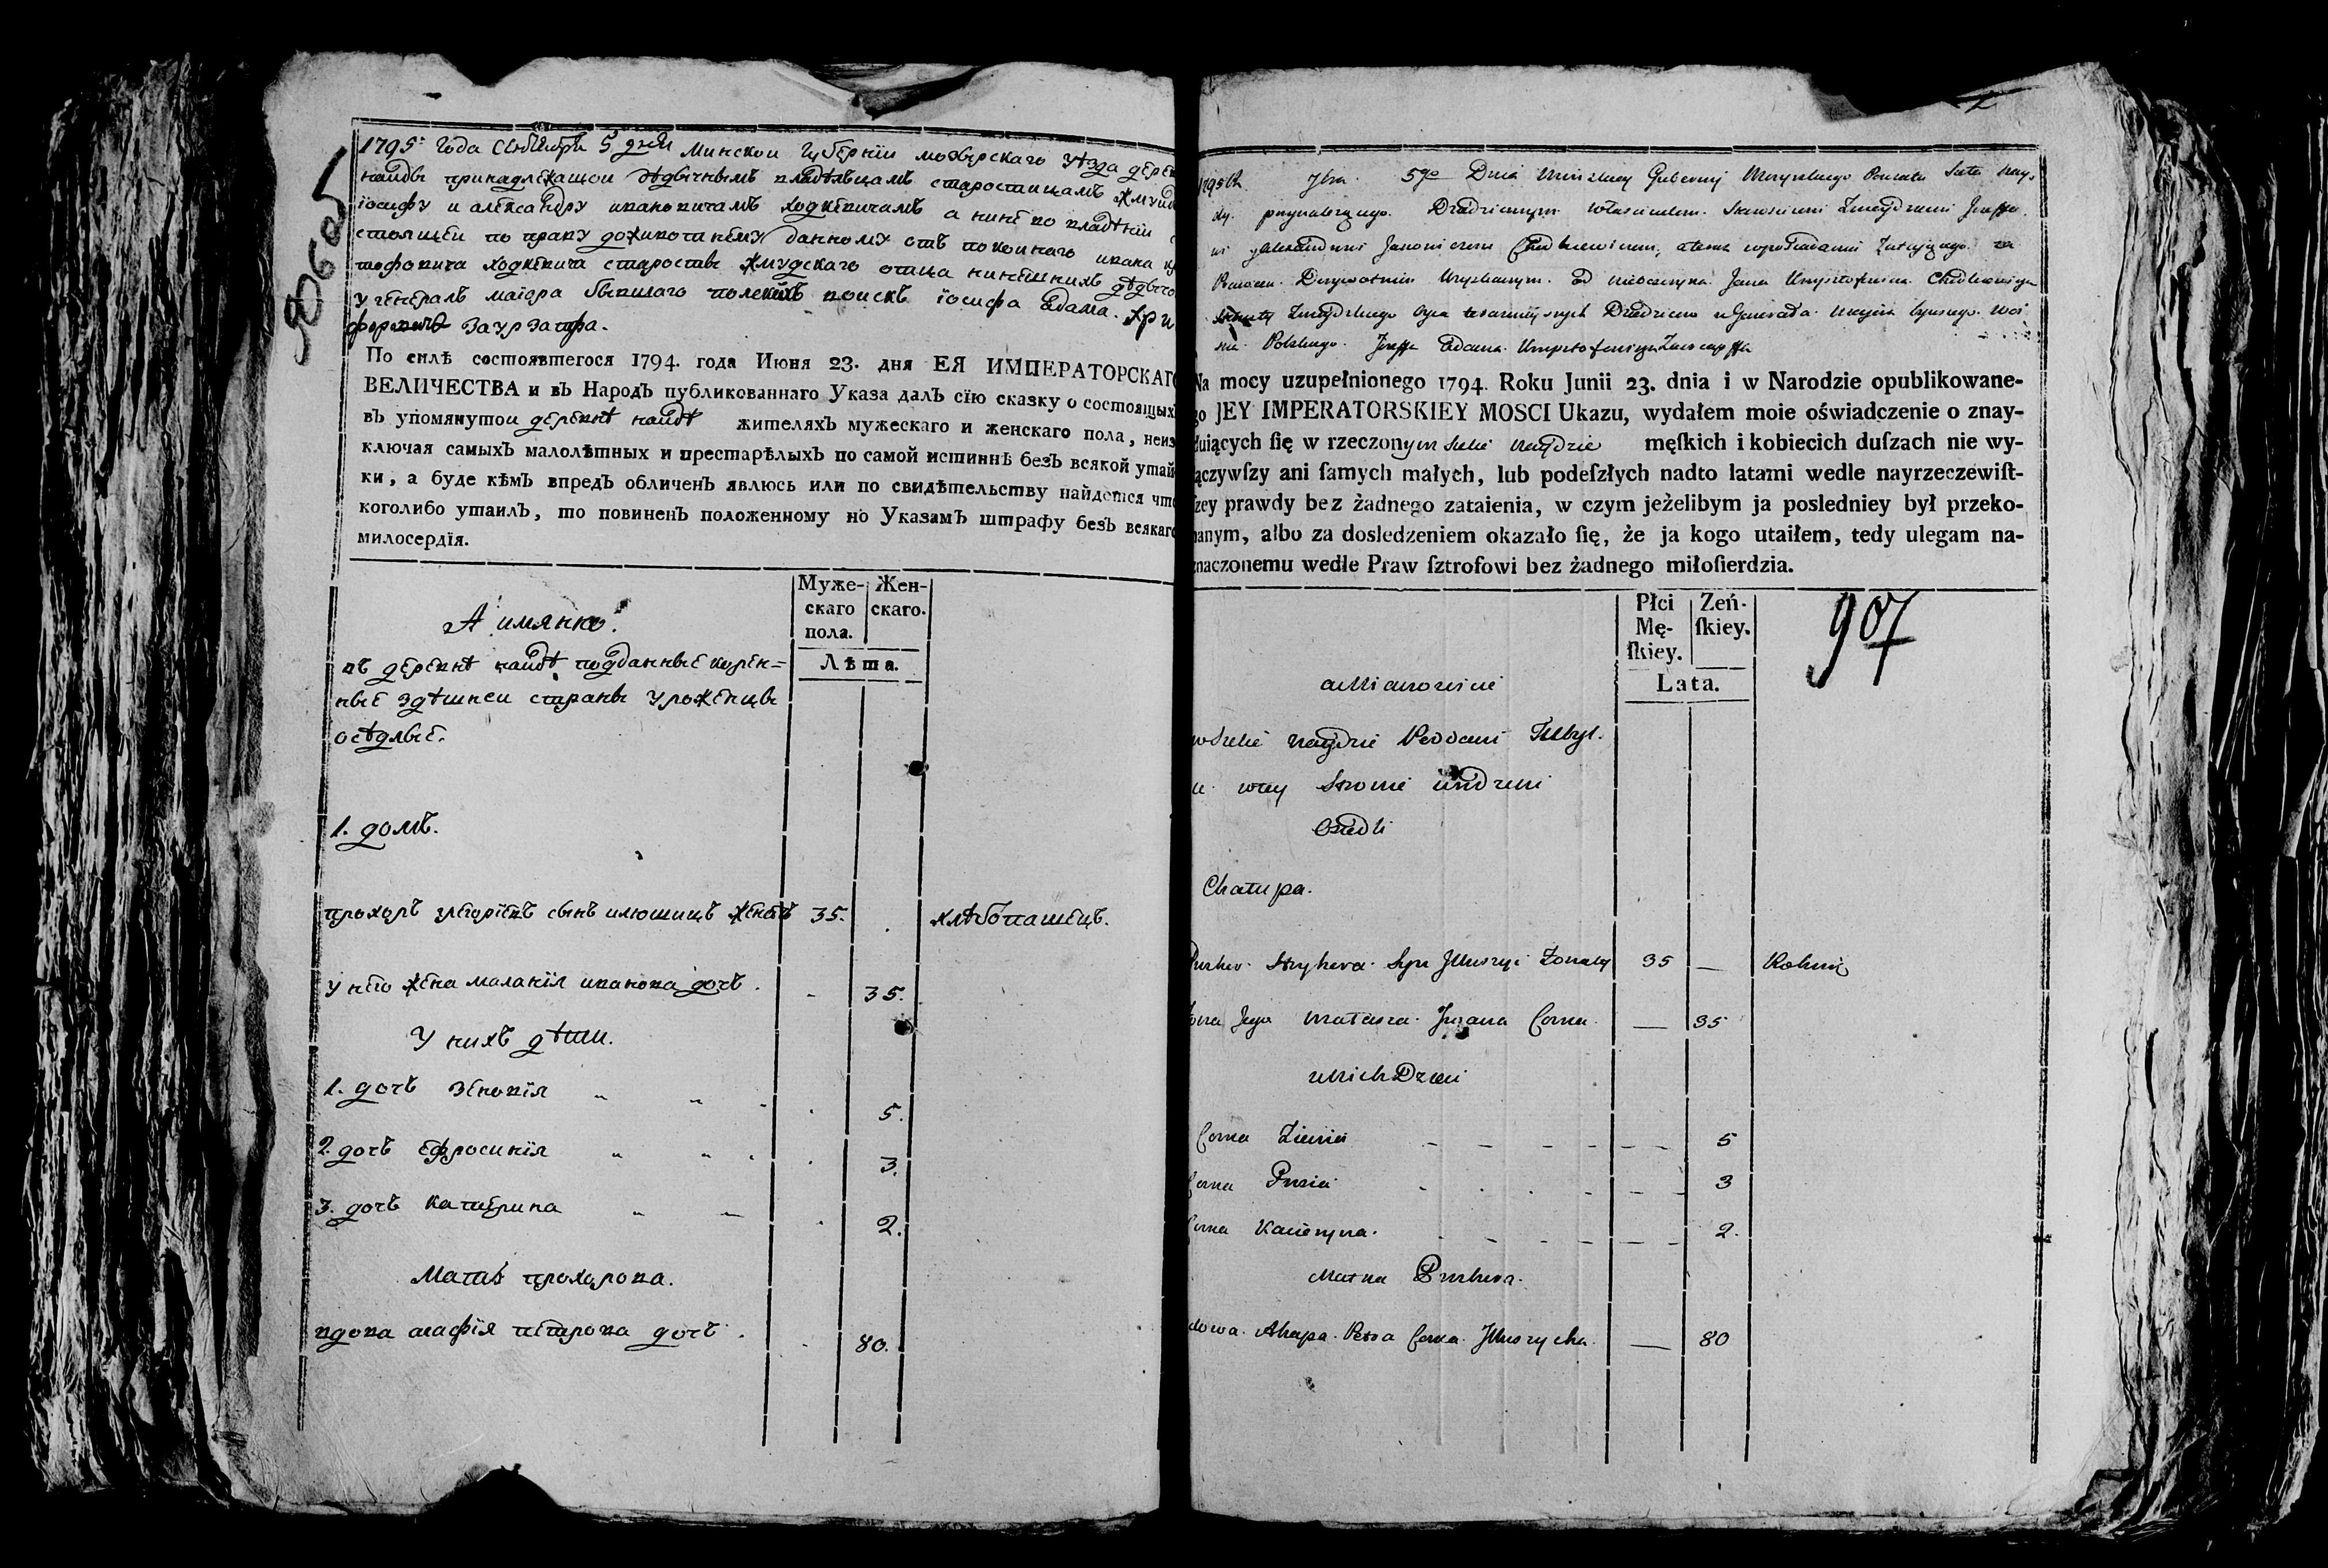 1795: года Сентября 5 дня Минской губернїи мозырскаго уѣзда дерев
наиды принадлежащои дѣдычнымъ владѣльцамъ старостицамъ жмуид
їосифу и александру ивановичамъ ходкевичамъ а нинѣ во владѣнїи
стоящеи по праву доживотнему данному отъ покоинаго ивана кр
тофовича ходкевича старосты жмудскаго отца нинѣшнихъ дѣдыч
у генералъ маїора бывшаго полскихъ воискъ їосифа Адама. кри
форовича заурзапфа.
По силѣ состоявтегося 1794. года Июня 23. дня ЕЯ ИМПЕРАТОРСКАГО
ВЕЛИЧЕСТВА и въ Народъ публикованнаго Указа далъ сїю сказку о состоящыхъ
въ упомянутои деревнѣ наидѣ жителяхъ мужескаго и женскаго пола, неиз
ключая самыхъ малолѣтных и престарѣлыхъ по самой истиннѣ безъ всякой утай
ки, а буде кѣмъ впредъ обличенъ явлюсь или по свидѣтельству найдется что
коголибо утаилъ, то повиненъ положенному по Указамъ штрафу безъ всякаго
милосердїя.
Муже- Жен-
скаго скаго.
пола.
Лѣта.
А имянно:
въ деревнѣ наидѣ подданные корен=
ные здѣшнеи страны уроженцы
осѣдлые.
1. домъ.
прохоръ григориевъ сынъ илюшицъ женатъ 35. хлѣбопашецъ.
у него жена маланїя иванова дочь. 35.
У нихъ дѣти.
1. дочь зеновїя 5.
2. дочь ефросинїя 3.
3. дочь катерина 2.
Мать прохорова.
вдова агафїя петрова дочь. 80.
5go Dnia Minskiey Guberniy Mozyrskiego Powiatu Sioła Nay-
dy. przynalezącego. Dziedzicznym Właścicielom. Starościcom Zmeydzkim Jozeffo.
wi y Alexandrowi Janowiczom Chodkiewiczom, a teraz w possiadaniu
Prawem. Dożywotnim Krzysztofowicza Chodkiewicza
Zmeydzkiego Oyca Dziedzicow u Generała. Majora bywszego. Woi
ska. Polskiego. Jozeffa Adama. Krzysztoforowicza Zaurzapffa
Na mocy uzupełnionego 1794. Roku Junii 23. dnia i w Narodzie opublikowane-
go JEY IMPERATORSKIEY MOSCI Ukazu, wydałem moie oświadczenie o znay-
duiących ſię w rzeczonym Siele Naydzie męſkich i kobiecich duſzach nie wy-
łączywſzy ani ſamych małych, lub podeſzłych nadto latami wedle nayrzeczewiſt-
ſzey prawdy bez żadnego zataienia, w czym jeżelibym ja posledniey był przeko-
nanym, albo za dosledzeniem okazało ſię, że ja kogo utaiłem, tedy ulegam na-
znaczonemu wedle Praw ſztrofowi bez żadnego miłoſierdzia.
Płci Zeń-
Mę- ſkiey.
ſkiey.
Lata.
907
a Mianowicie
w Siele Naydzie Poddani Tubyl.
Osiedli
Chałupa.
Prokop. Hryhora. Syn Jlluszyc Zonaty 35 — Rolnik
Zona Jego Małasza. Jwana Corka. — 35
u Nich Dzieci
Corka Zienia 5
Corka Prusia 3
Corka Kacieryna. 2.
Matka Prokopa.
dowa. Ahapa. Petra Corka. Jlluszycha. — 80